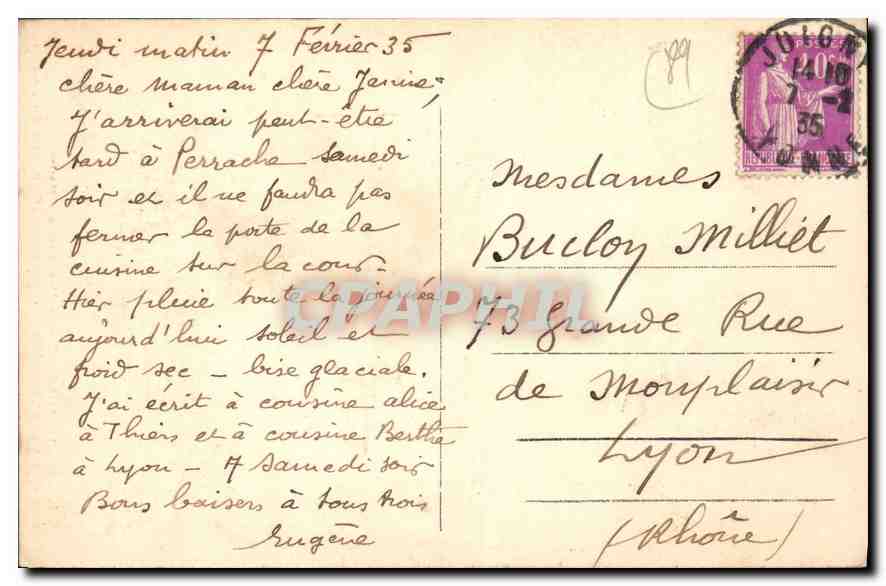 Jeudi matin 7 Février 35
chère maman chère Janine,
J'arriverai peut-être
tard à Perrache samedi
soir et il ne faudra pas
fermer la porte de la
cuisine sur la cour.
Hier pluie toute la journée
aujourd'hui soleil et
froid sec – bise glaciale.
J'ai écrit à cousine alice
à Thiers et à cousine Berthe
à Lyon – A samedi soir
Bons baisers à tous trois
Eugène
89
JOIGNY
14 10
7 -2
35
YONNE
POSTES
40c
REPUBLIQUE FRANCAISE
Mesdames
Bucloy Milliet
73 Grande Rue
de Monplaisir
Lyon
(Rhône)
CPAPHIL